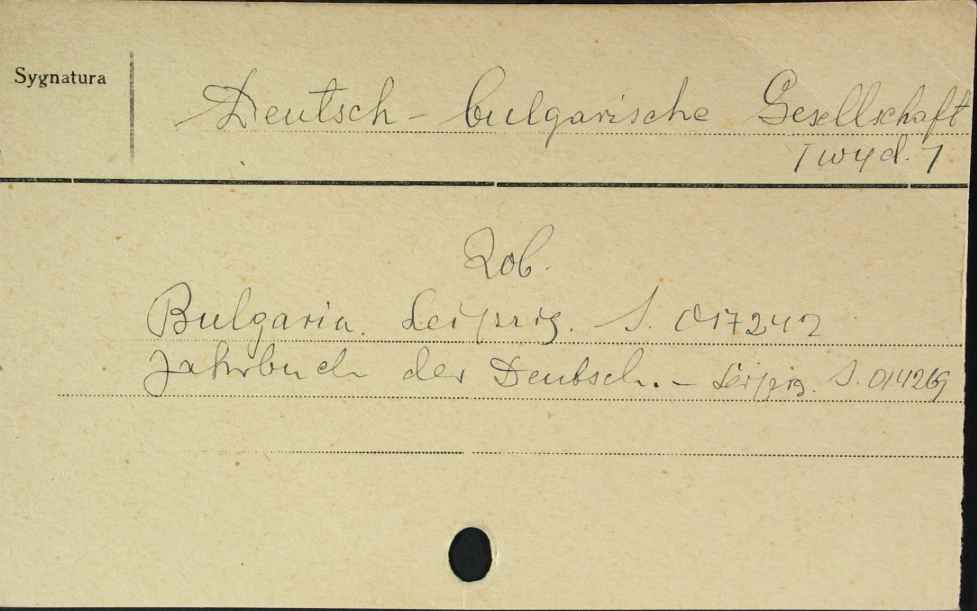 Sygnatura
Deutsch-bulgarische Gesellschaft
[wyd.]
Zob.
Bulgaria. Leipzig. S. 017242
Jahrbuch der Deutsch. - Leipzig. S. 014269